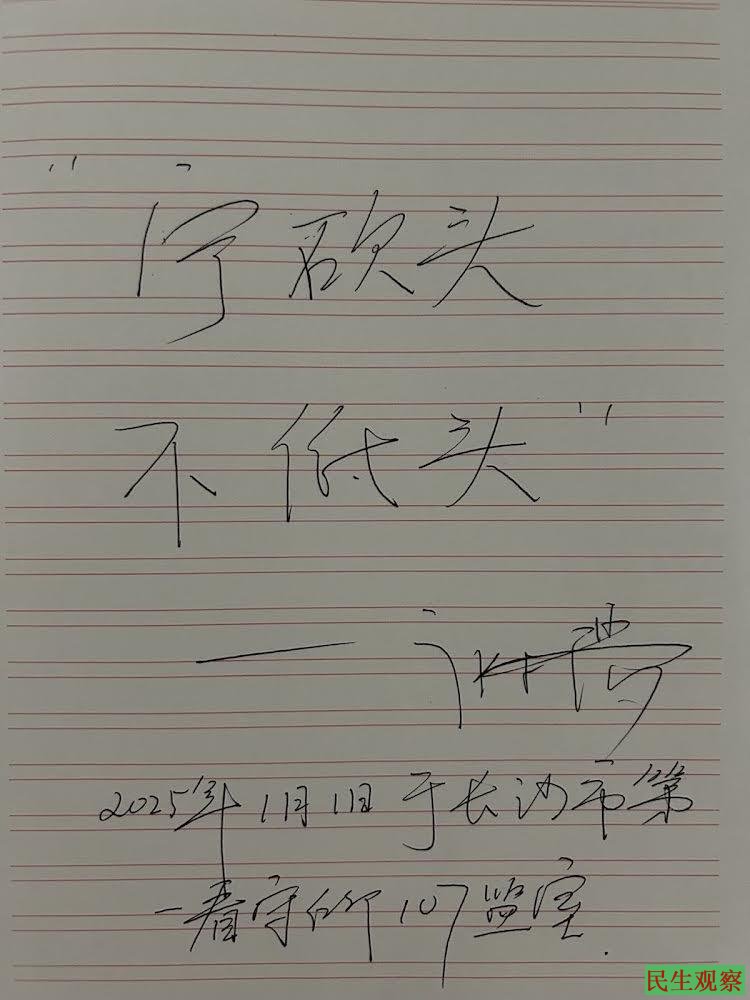 “宁砍头
不低头”
—
2025年1月1日于长沙市第
一看守所107监室.
民生观察